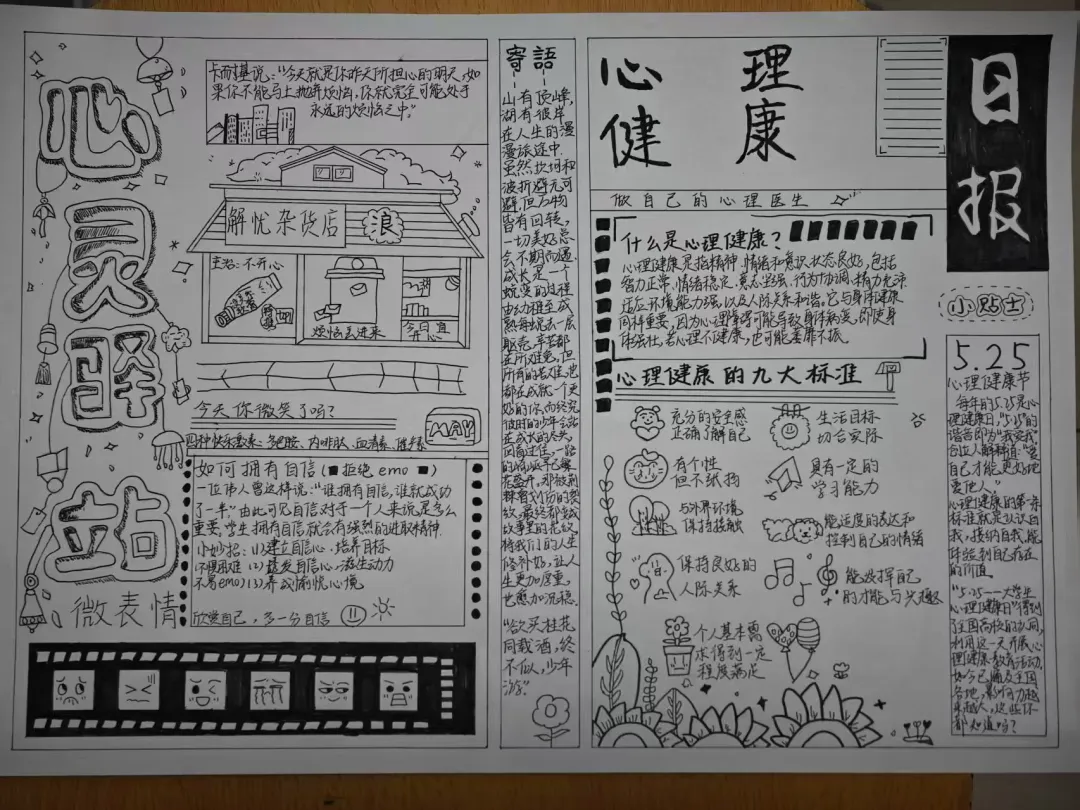 心灵驿站
卡耐基说:“今天就是你昨天所担心的明天,如
果你不能马上抛弃烦恼,你就完全可能处于
永远的烦恼之中”
解忧杂货店
浪
主治:不开心
烦恼丢进来
今日宜
开心
今天你微笑了吗?
MAY
四种快乐激素:多巴胺、内啡肽、血清素、催产素
如何拥有自信(拒绝emo)
一位伟人曾这样说:“谁拥有自信,谁就成功
了一半”由此可见自信对于一个人来说是多么
重要,学生拥有自信就会有强烈的进取精神.
小妙招:(1)建立自信心,培养目标
不惧困难(2)激发自信心,滋生动力
不易emo(3)养成愉悦心境
欣赏自己,多一分自信
微表情
寄語
山有顶峰,
湖有彼岸
在人生的漫
漫旅途中.
虽然坎坷和
波折避无可
避,但万物
皆有回转,
一切美好总
会不期而遇.
成长是一个
蜕变的过程
由幼稚至成
熟每蜕去一层
躯壳,辛苦都
在所难免,但
所有的苦难,也
都在成就一个更
好的你,
将我们的人生
修补好,让人
生更加厚重,
也愈加沉稳.
“欲买桂花
同载酒,终
不似,少年
游.”
心理
健康
日报
做自己的心理医生
什么是心理健康?
心理健康是指精神、情绪和意识状态良好,包括
智力正常,情绪稳定,意志坚强,行为协调,精力充沛
适应环境能力强,以及人际关系和谐,它与身体健康
同样重要,因为心理障碍可能导致身体病变,即使身
体强壮,若心理不健康,也可能萎靡不振.
心理健康的九大标准
充分的安全感
正确了解自己
生活目标
切合实际
有个性
但不纸拘
具有一定的
学习能力
与外界环境
保持接触
能适度的表达和
控制自己的情绪
保持良好的
人际关系
能发挥自己
的才能与兴趣
个人基本需
求得到一定
程度满足
小贴士
5.25
心理健康节
每年的5.25是心
理健康日,“5.25”的
谐音即为“我爱我”
台位人解释道:“爱
自己才能更好地
爱他人.”
心理健康的第一条
标准就是认识自
我,接纳自我,能
体验到自己存在
的价值.
“5.25——大学生
心理健康日”得到
了全国高校的认同,
利用这一天开展心
理健康教育活动,
如今已遍及全国
各地,影响力越
来越大,这些你
都知道吗?